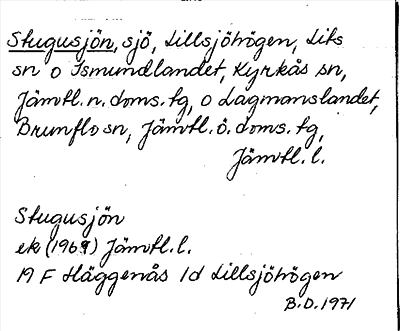 Stugusjön, sjö, Lillsjöhögen, Lits
sn o Ismundlandet, Kyrkås sn,
Jämtl. n. doms. tg, o Lagmanslandet,
Brunflo sn, Jämtl. ö. doms. tg,
Jämtl. l.
Stugusjön
ek (1969) Jämtl. l.
19 F Häggenås 1d Lillsjöhögen
B.D. 1971